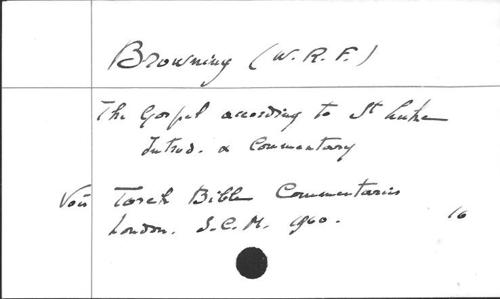 Browning (W. R. F.)
The Gospel according to St Luke
Introd. & Commentary
Voir Torch Bible Commentaries
London. S.C.M. 1960. 16